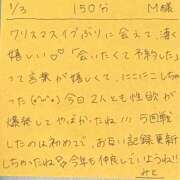 1/3　150分　M様
クリスマスイブぶりに会えて、凄く
嬉しい♡「会いたくて予約した」
って言葉が嬉しくて、にこにこしち
ゃった(*ˊᵕˋ*) 今日2人とも性欲が
爆発してやばかったね!!! 5回戦
したのは初めてで、お互い記録更新
しちゃったね 今年も仲良していようね!!
みと